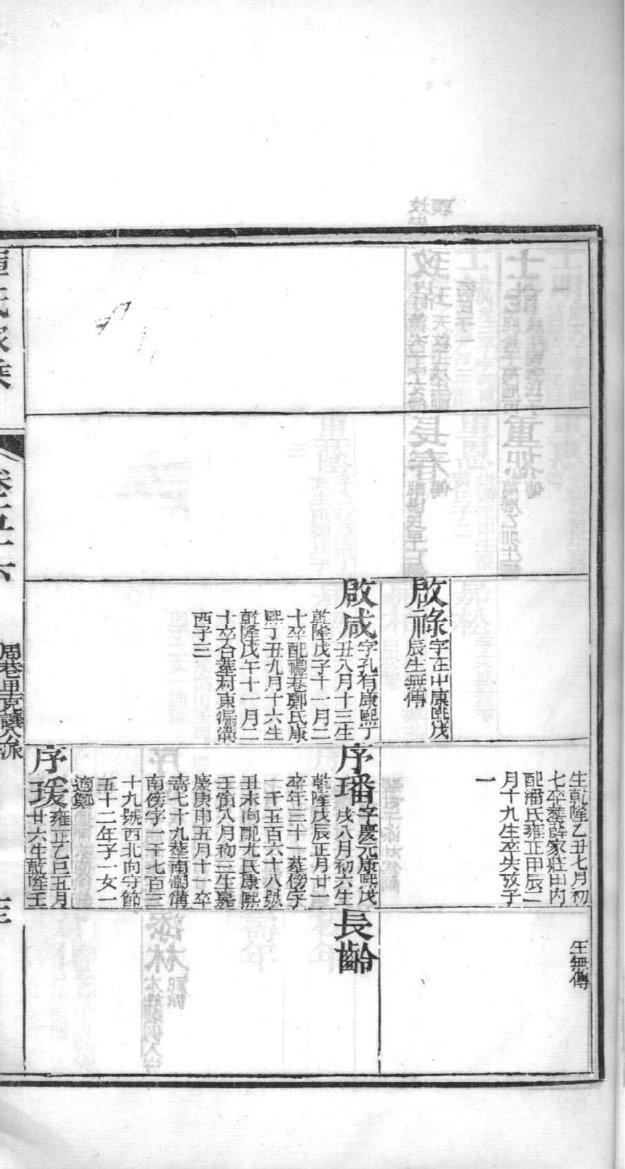 啟祿字在中康熙戊
辰生無傳
啟咸字孔有康熙丁
丑八月十三生
乾隆戊子十一月二
十卒配禮巷鄭氏康
熙丁丑九月十六生
乾隆戊午十一月二
十卒合葬莉東漏溝
西子三
生乾隆乙丑七月初
七卒葬薛家莊田內
配潘氏雍正甲辰二
月十九生卒失攷子
一
序璠字慶元康熙戊
戌八月初六生
乾隆戊辰正月廿二
卒年三十一葬傍字
一千五百六十八號
丑未向配尤氏康熙
壬寅八月初三生嘉
慶庚申五月十一卒
壽七十九葬南漏溝
南傍字一千七百三
十九號西北向守節
五十二年子一女一
適鄭
序瑗雍正乙巳五月
廿六生乾隆壬
生無傳
長齡
家乘
卷五十六
周巷里克讓公派